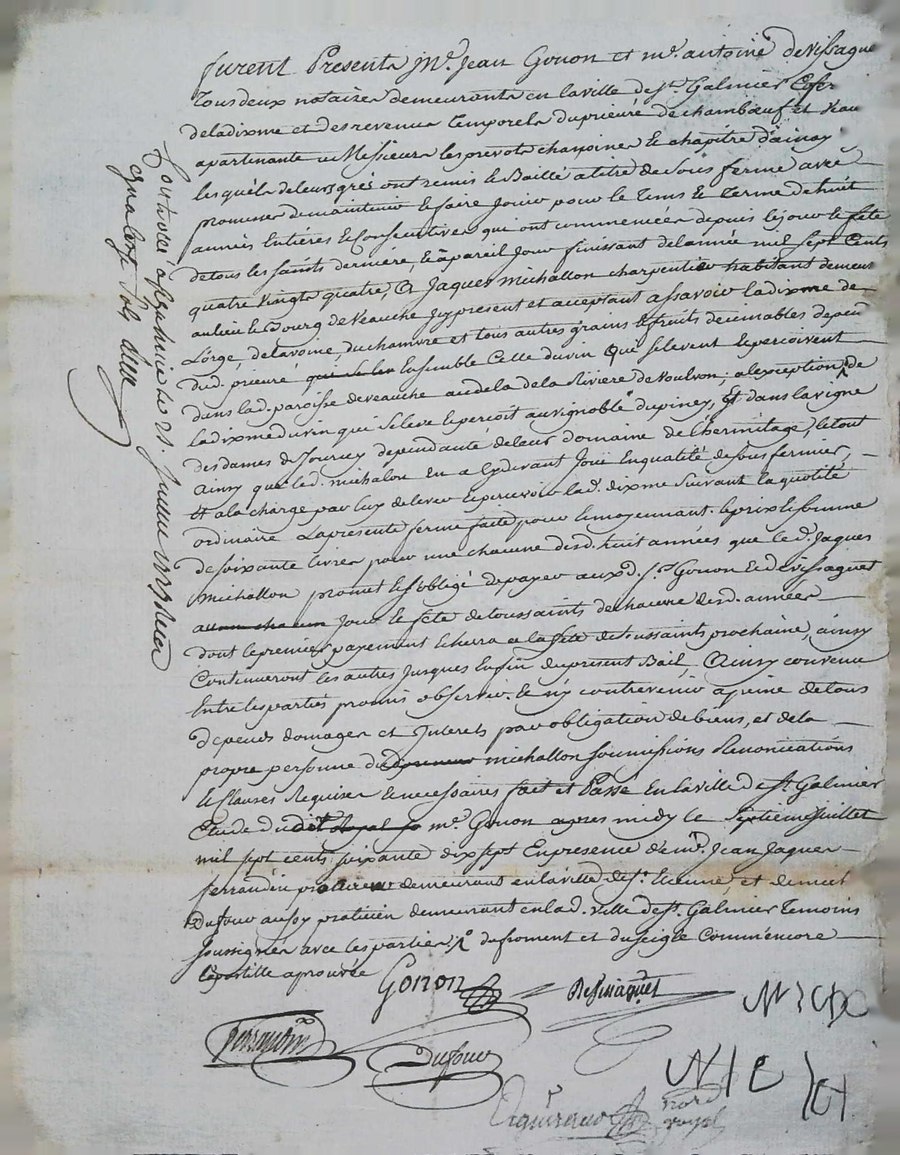 furent Presents Me. Jean Gonon et me. antoine devissaguet
Tous deux notaires demeurants en la ville de st. Galmier
de la dixme et des revenus temporels du prieuré de chambœuf et veau
apartenants a Messieurs les prevots chanoines le chapitre d'ainay
lesquels de leurs grés ont remis et Baillé a titre de sous ferme avec
promesse de maintenir et faire Jouir pour le tems et terme de huit
années Entieres et Consecutives qui ont commencées depuis le jour et fête
de tous les saints derniere, et a pareil Jour finissant de l'année mil sept Cents
quatre vingts quatre, a Jaques michallon charpentier habitant demeut
au lieu et Bourg de veauche Jcy present et acceptant assavoir la dixme de
L'orge, de lavoine, du chamvre et tous autres grains et fruits decimables depend
dud. prieuré qui se lev Ensemble Celle du vin Que se levent et perçoivent
dans lad. paroisse de veauche au dela de la Riviere de voulvon; a l'exception de
la dixme du vin qui se leve et perçoit au vignoble du piney, Et dans la vigne
des dames de Joursey dependante de leur domaine de l'hermitage, le tout
ainsy que led. michalon en a cydevant Joüi En qualité de sous fermier, —
Et a la charge par luy de lever et percevoir lad. dixme suivant la quotité
ordinaire La presente ferme faite pour et moyennant le prix et somme
de soixante livres pour une chacune desd. huit années que led. Jaques
Michallon promet et s'obligé de payer auxd. srs. Gonon et devissaguet
a un chacun Jour et fête de toussaints de chacune desd. années —
dont le premier payement Echerra a la fête de toussaints prochaine, ainsy
Continueront les autres Jusques En fin du present Bail, Ainsy convenu
Entre les parties promis observer et n'y contrevenir a peine de tous
depends domages et Interets par obligation de biens, et de la —
propre personne dud preneur michallon soumissions Renonciations
et Clauses Requises et necessaires fait et Passé En la ville de st. Galmier
Etude dudit me. Gonon apres midy le septieme juillet
mil sept cents soixante dix sept En presence de me. Jean Jaques —
ferrandin demeurant en la ville de st. Etienne, et de
Dufour aussy praticien demeurant en lad. ville de st. Galmier Temoins
soussignés avec les parties, du froment et du seigle Comm'encore —
l'apostille aprouvée
Gonon
Devissaguet
ferrandin
Dufour
nore
royal
Controllé a st galmier le 21. Juillet 1777 Recu
quatorze sols